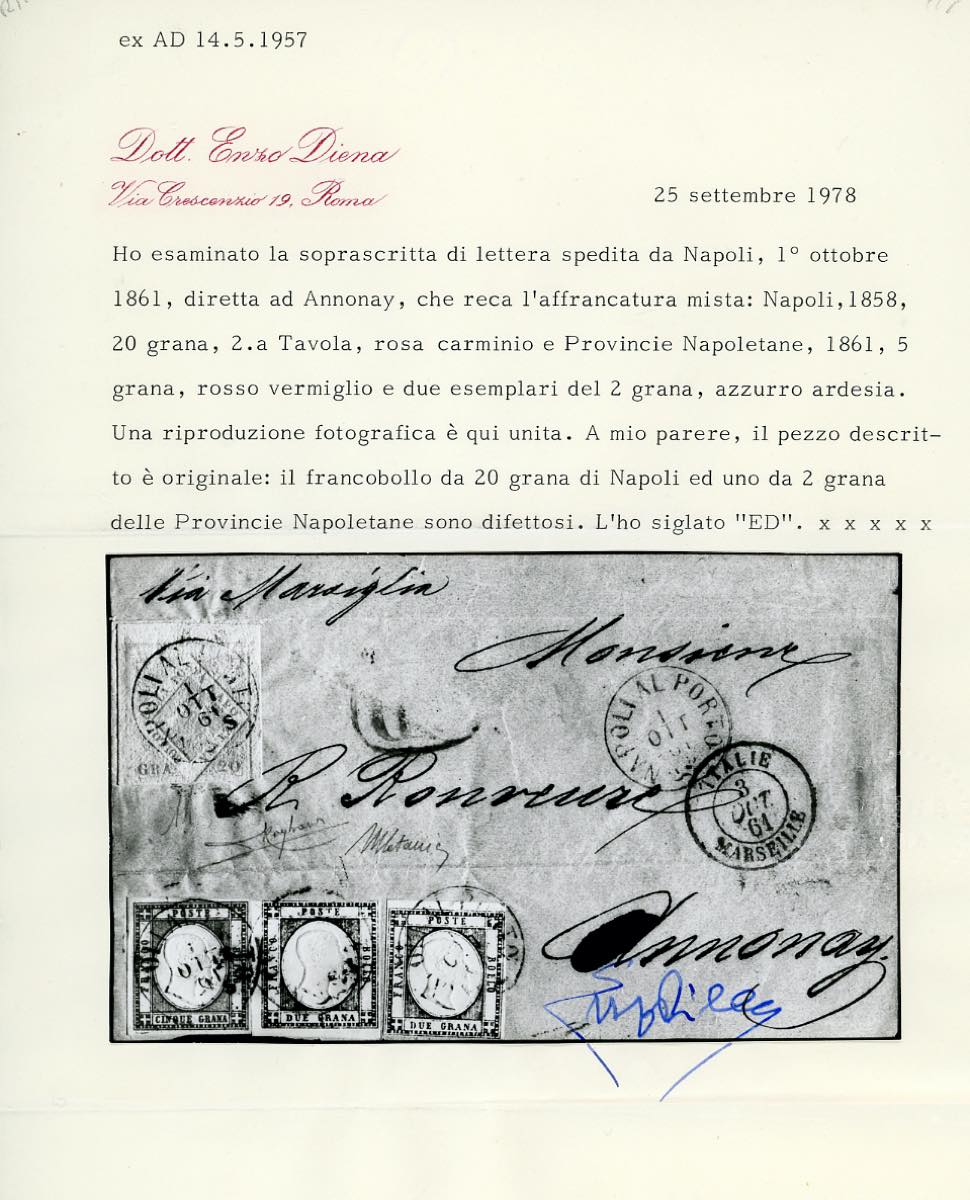 ex AD 14.5.1957
Dott. Enzo Diena
Via Crescenzio 19, Roma
25 settembre 1978
Ho esaminato la soprascritta di lettera spedita da Napoli, 1° ottobre
1861, diretta ad Annonay, che reca l'affrancatura mista: Napoli,1858,
20 grana, 2.a Tavola, rosa carminio e Provincie Napoletane, 1861, 5
grana, rosso vermiglio e due esemplari del 2 grana, azzurro ardesia.
Una riproduzione fotografica è qui unita. A mio parere, il pezzo descrit-
to è originale: il francobollo da 20 grana di Napoli ed uno da 2 grana
delle Provincie Napoletane sono difettosi. L'ho siglato "ED". x x x x x
Via Marsiglia
Monsieur
NAPOLI AL
1 OTT 61
GRA 20
NAPOLI AL PORTO
1
OTT
R
ITALIE
3
OCT.
61
MARSEILLE
Annonay.
POSTE
FRANCO
BOLLO
CINQUE GRANA
POSTE
FRANCO
BOLLO
DUE GRANA
POSTE
FRANCO
BOLLO
DUE GRANA